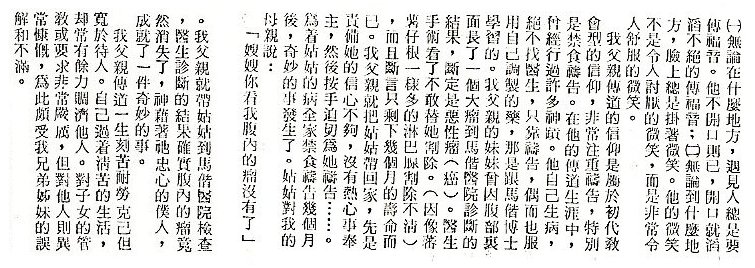 ㈠無論在什麼地方,遇見人總是要
傳福音。他不開口則已,開口就滔
滔不絕的傳福音;㈡無論到什麼地
方,臉上總是掛著微笑。他的微笑
不是令人討厭的微笑,而是非常令
人舒服的微笑。
我父親傳道的信仰是屬於初代教
會型的信仰,非常注重禱告,特別
是禁食禱告。在他的傳道生涯中,
曾經行過許多神蹟。他自己生病,
絕不找醫生,只靠禱告,偶而也服
用自己調製的藥,那是跟馬偕博士
學習的。我父親的妹妹曾因腹部裏
面長了一個大瘤到馬偕醫院診斷的
結果,斷定是惡性瘤(癌)。醫生
手術看了不敢替她割除。(因像蕃
薯仔根一樣多的淋巴腺割除不清)
,而且斷言只剩下幾個月的壽命而
已。我父親就把姑姑帶回家,先是
責備她的信心不夠,沒有熱心事奉
主,然後按手迫切為她禱告……。
為着姑姑的病全家禁食禱告幾個月
後,奇妙的事發生了。姑姑對我的
母親說:
「嫂嫂你看我腹內的瘤沒有了」
。我父親就帶姑姑到馬偕醫院檢查
,醫生診斷的結果確實腹內的瘤竟
然消失了,神藉著祂忠心的僕人,
成就了一件奇妙的事。
我父親傳道一生刻苦耐勞克己但
寬於待人。自己過着清苦的生活,
却常有餘力賙濟他人。對子女的管
教或要求非常嚴厲,但對他人則異
常慷慨,為此頗受我兄弟姊妹的誤
解和不滿。